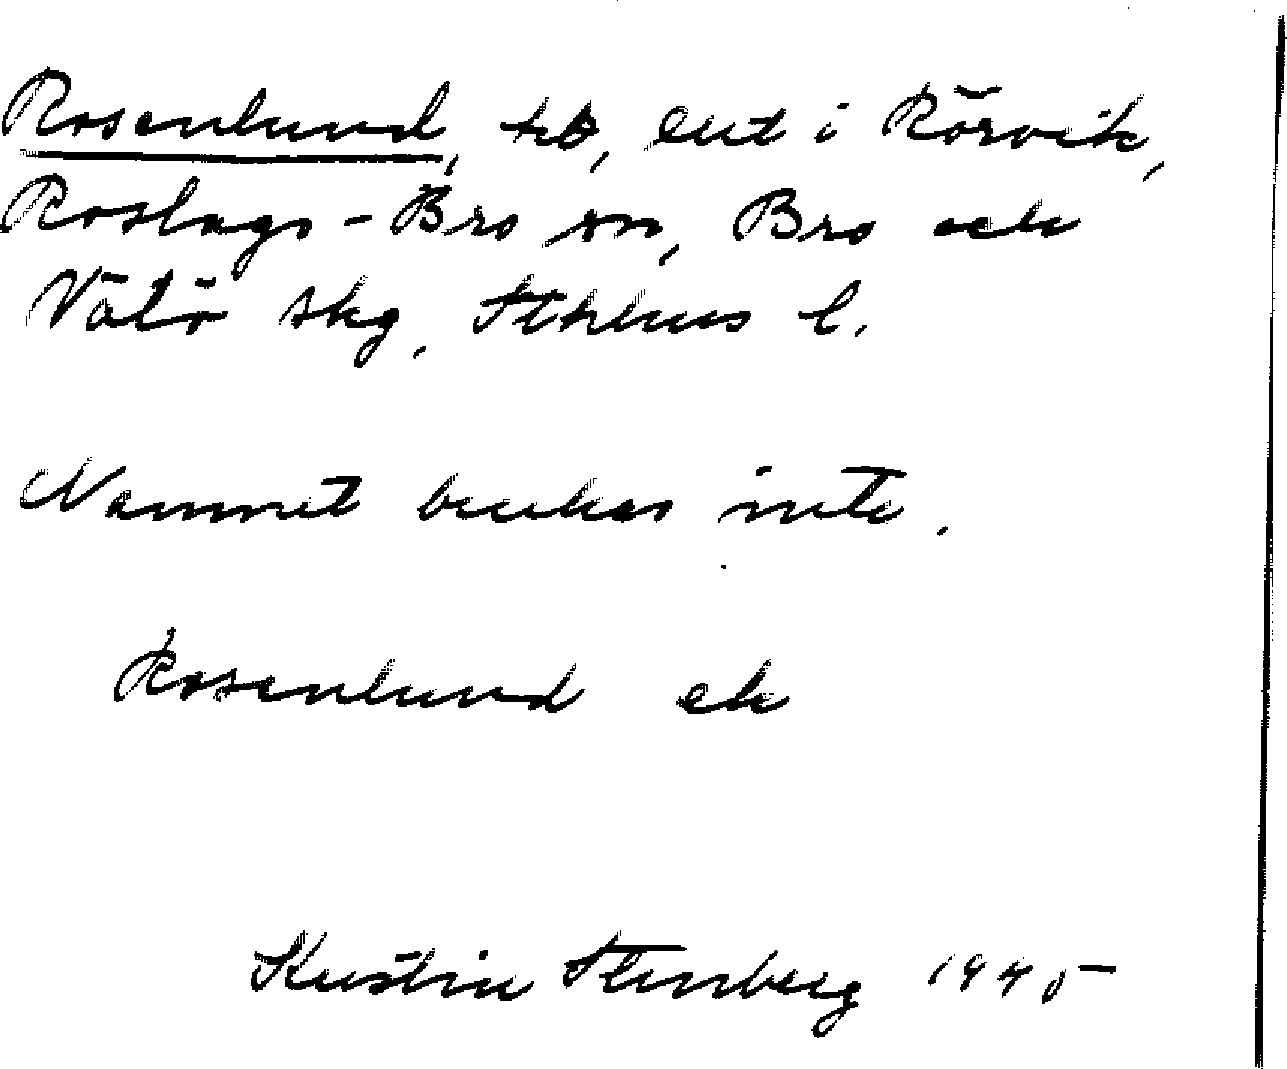 Rosenlund, tb, lut i Rörvik,
Roslags-Bro sn, Bro och
Vätö skg, Sthlms l.
Namnet brukas inte.
Rosenlund ek
Kerstin Stenberg 1945